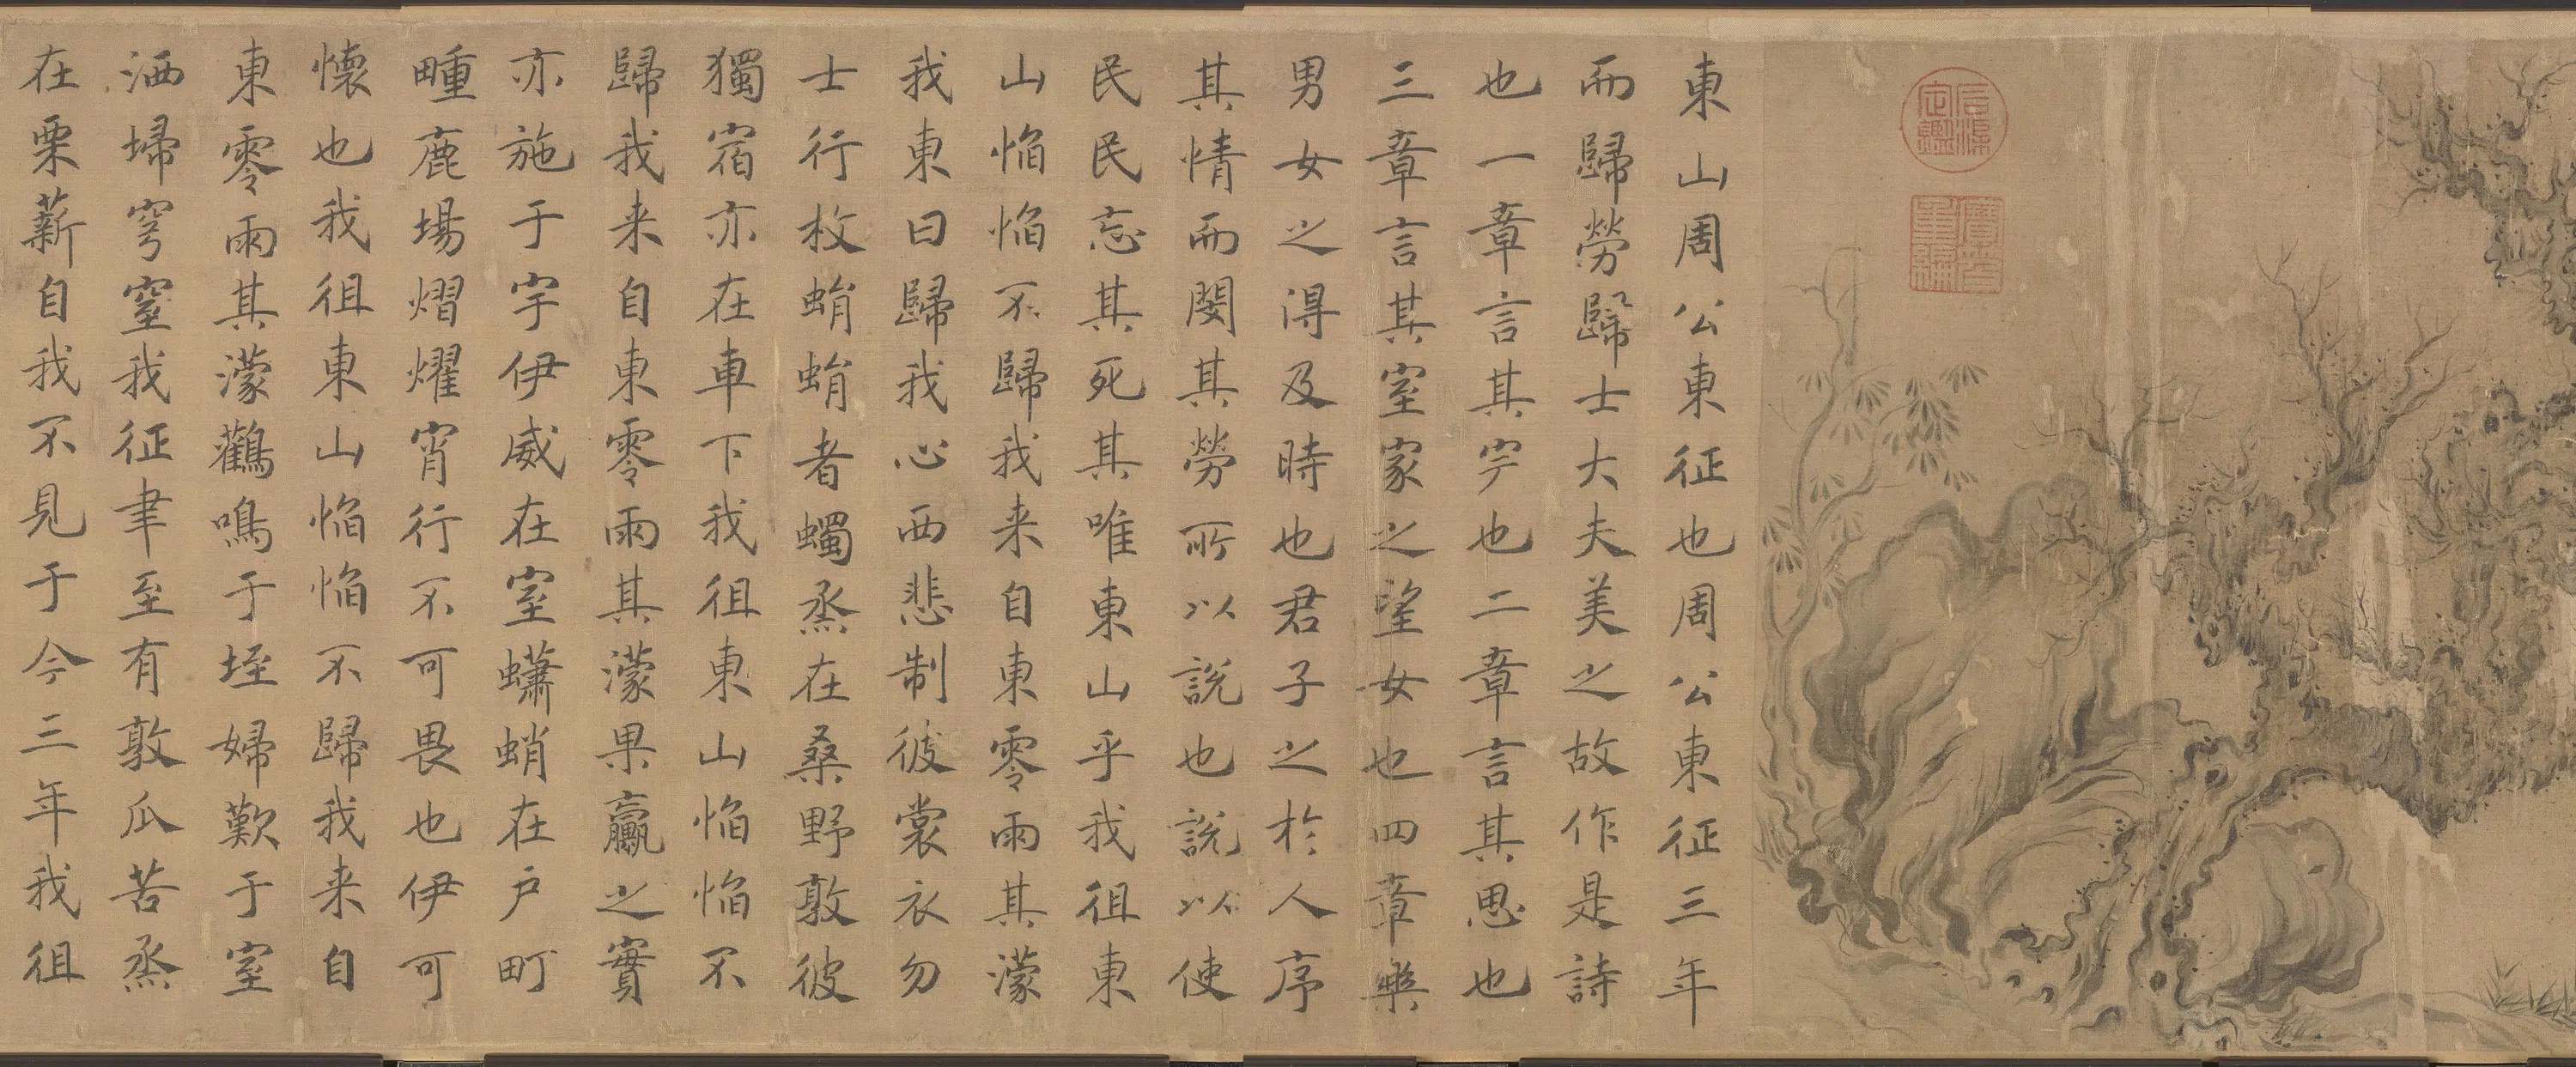 石渠定鑑
寶笈重編
東山周公東征也周公東征三年
而歸勞歸士大夫美之故作是詩
也一章言其完也二章言其思也
三章言其室家之望女也四章樂
男女之得及時也君子之於人序
其情而閔其勞所以說也說以使
民民忘其死其唯東山乎我徂東
山慆慆不歸我来自東零雨其濛
我東曰歸我心西悲制彼裳衣勿
士行枚蜎蜎者蠋烝在桑野敦彼
獨宿亦在車下我徂東山慆慆不
歸我来自東零雨其濛果臝之實
亦施于宇伊威在室蠨蛸在戶町
畽鹿場熠燿宵行不可畏也伊可
懷也我徂東山慆慆不歸我来自
東零雨其濛鸛鳴于垤婦歎于室
洒埽穹窒我征聿至有敦瓜苦烝
在栗薪自我不見于今三年我徂